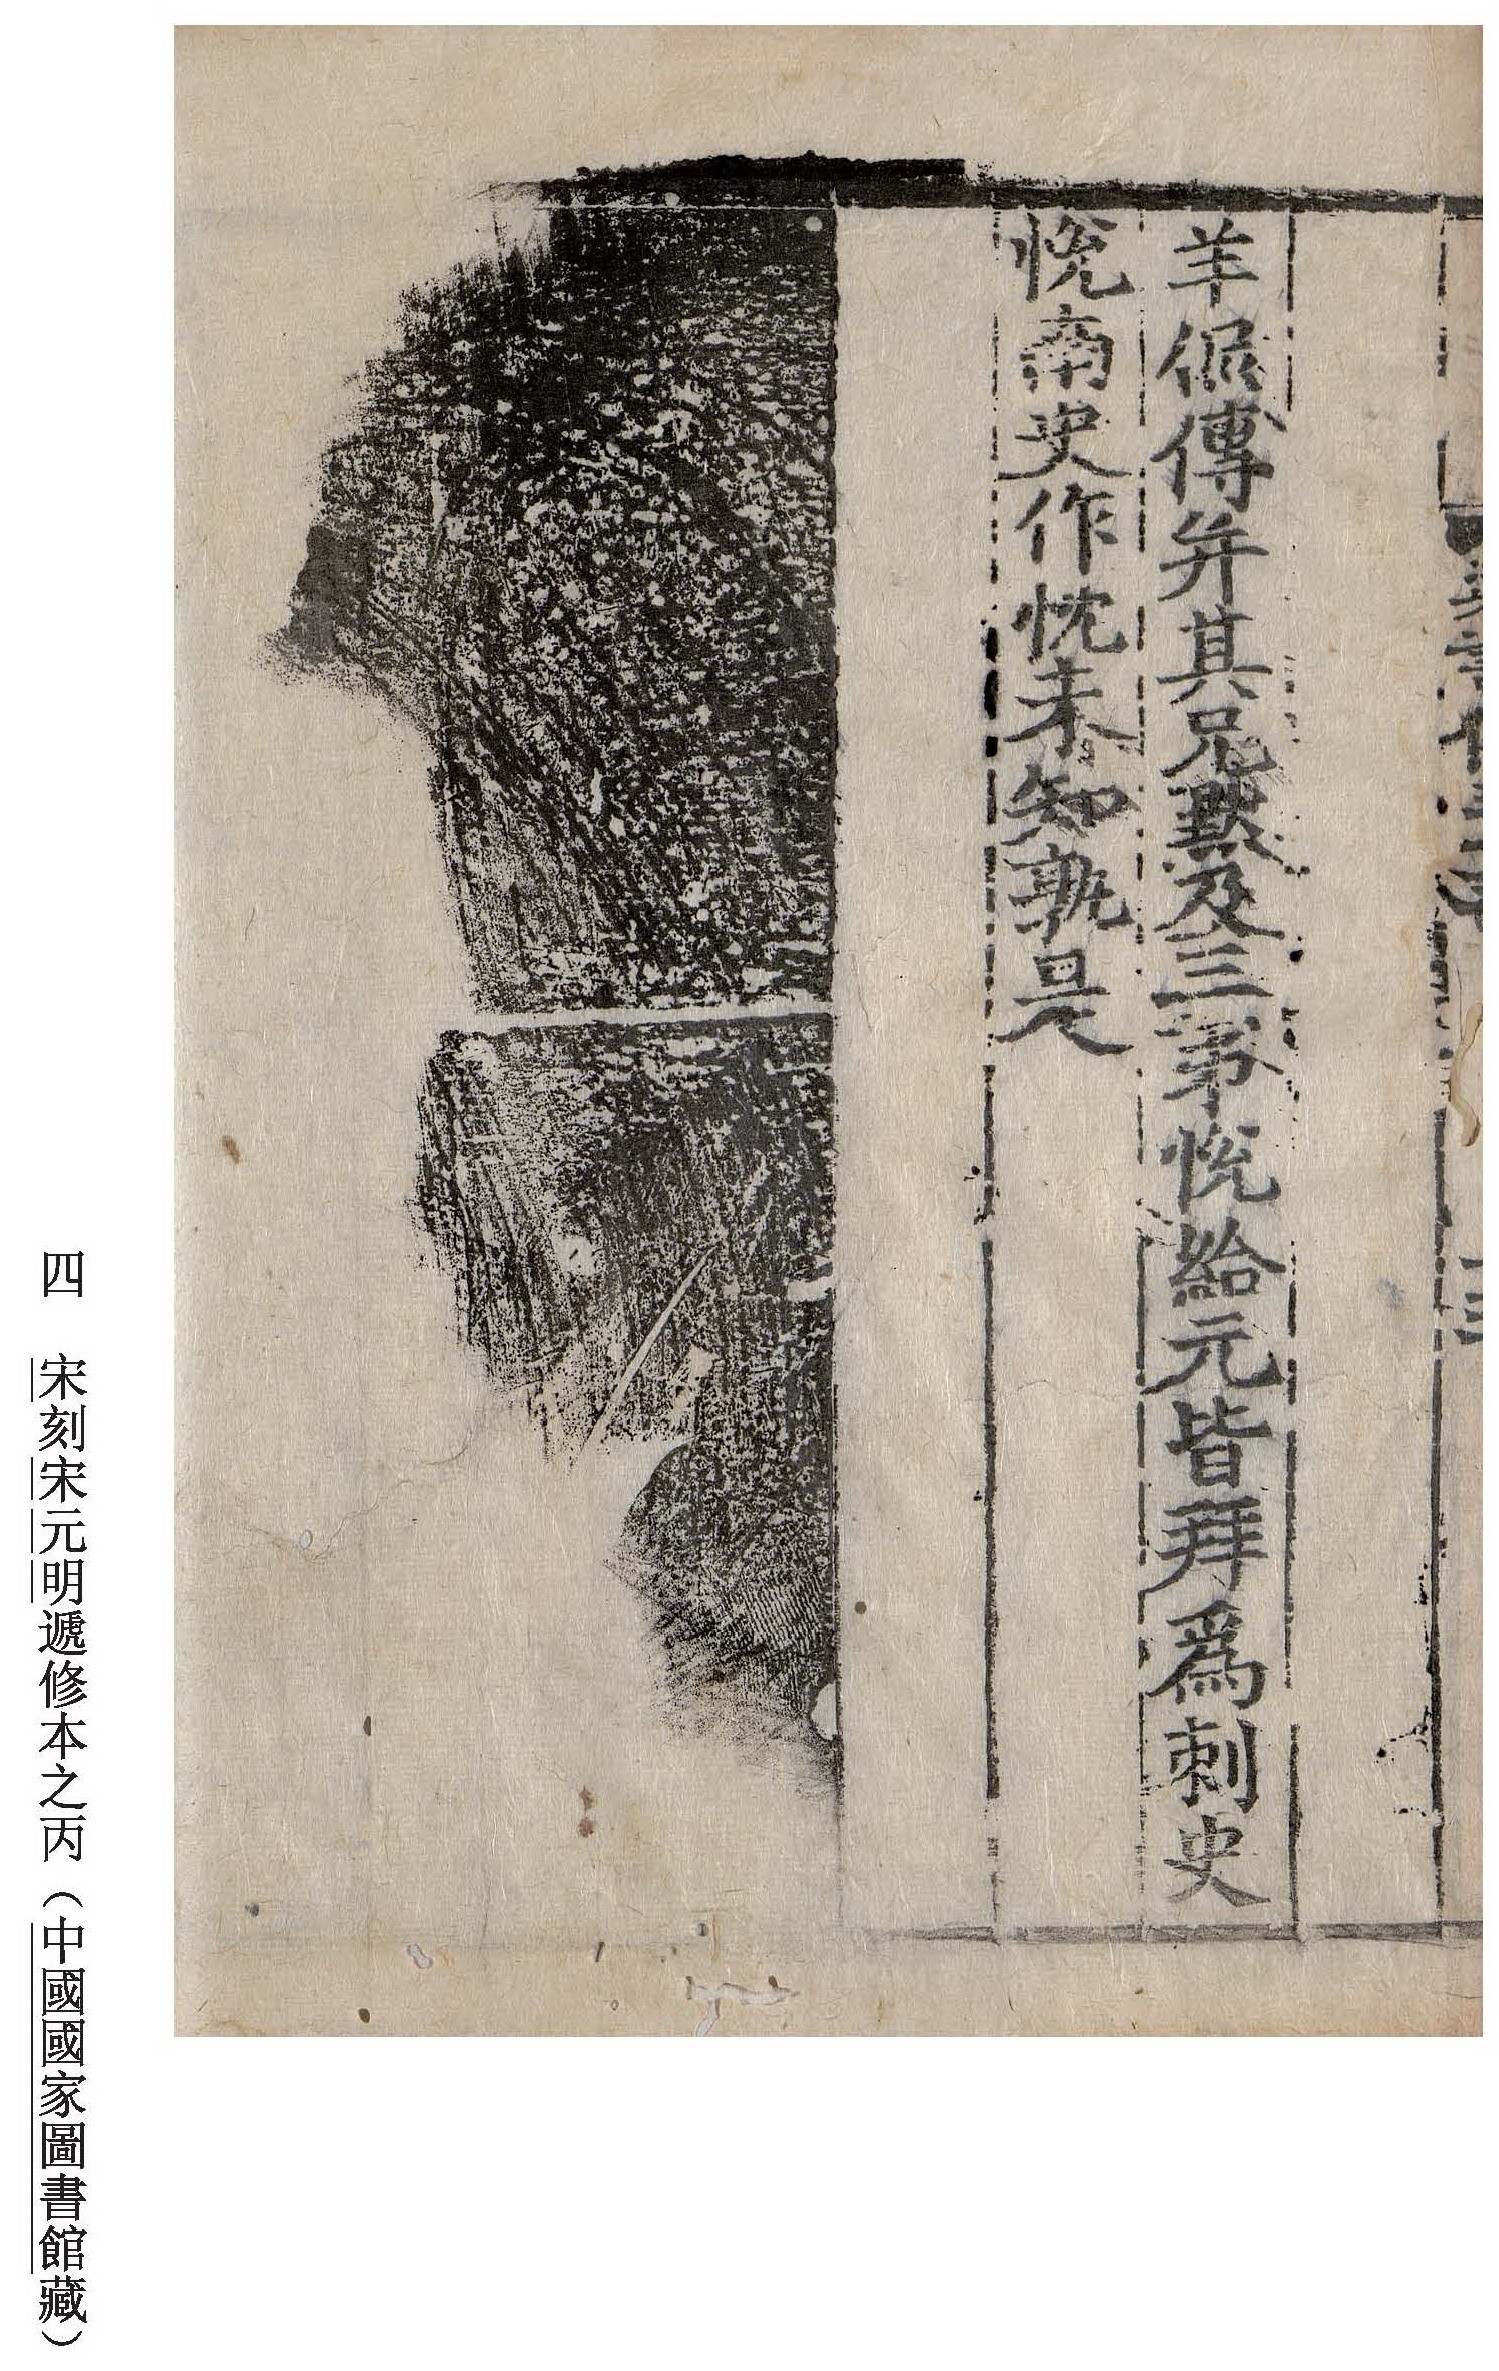 羊侃傳并其兄默及三弟悅給元皆拜爲刺史
悅南史作忱未知孰是
四　宋刻宋元明遞修本之丙（中國國家圖書館藏）